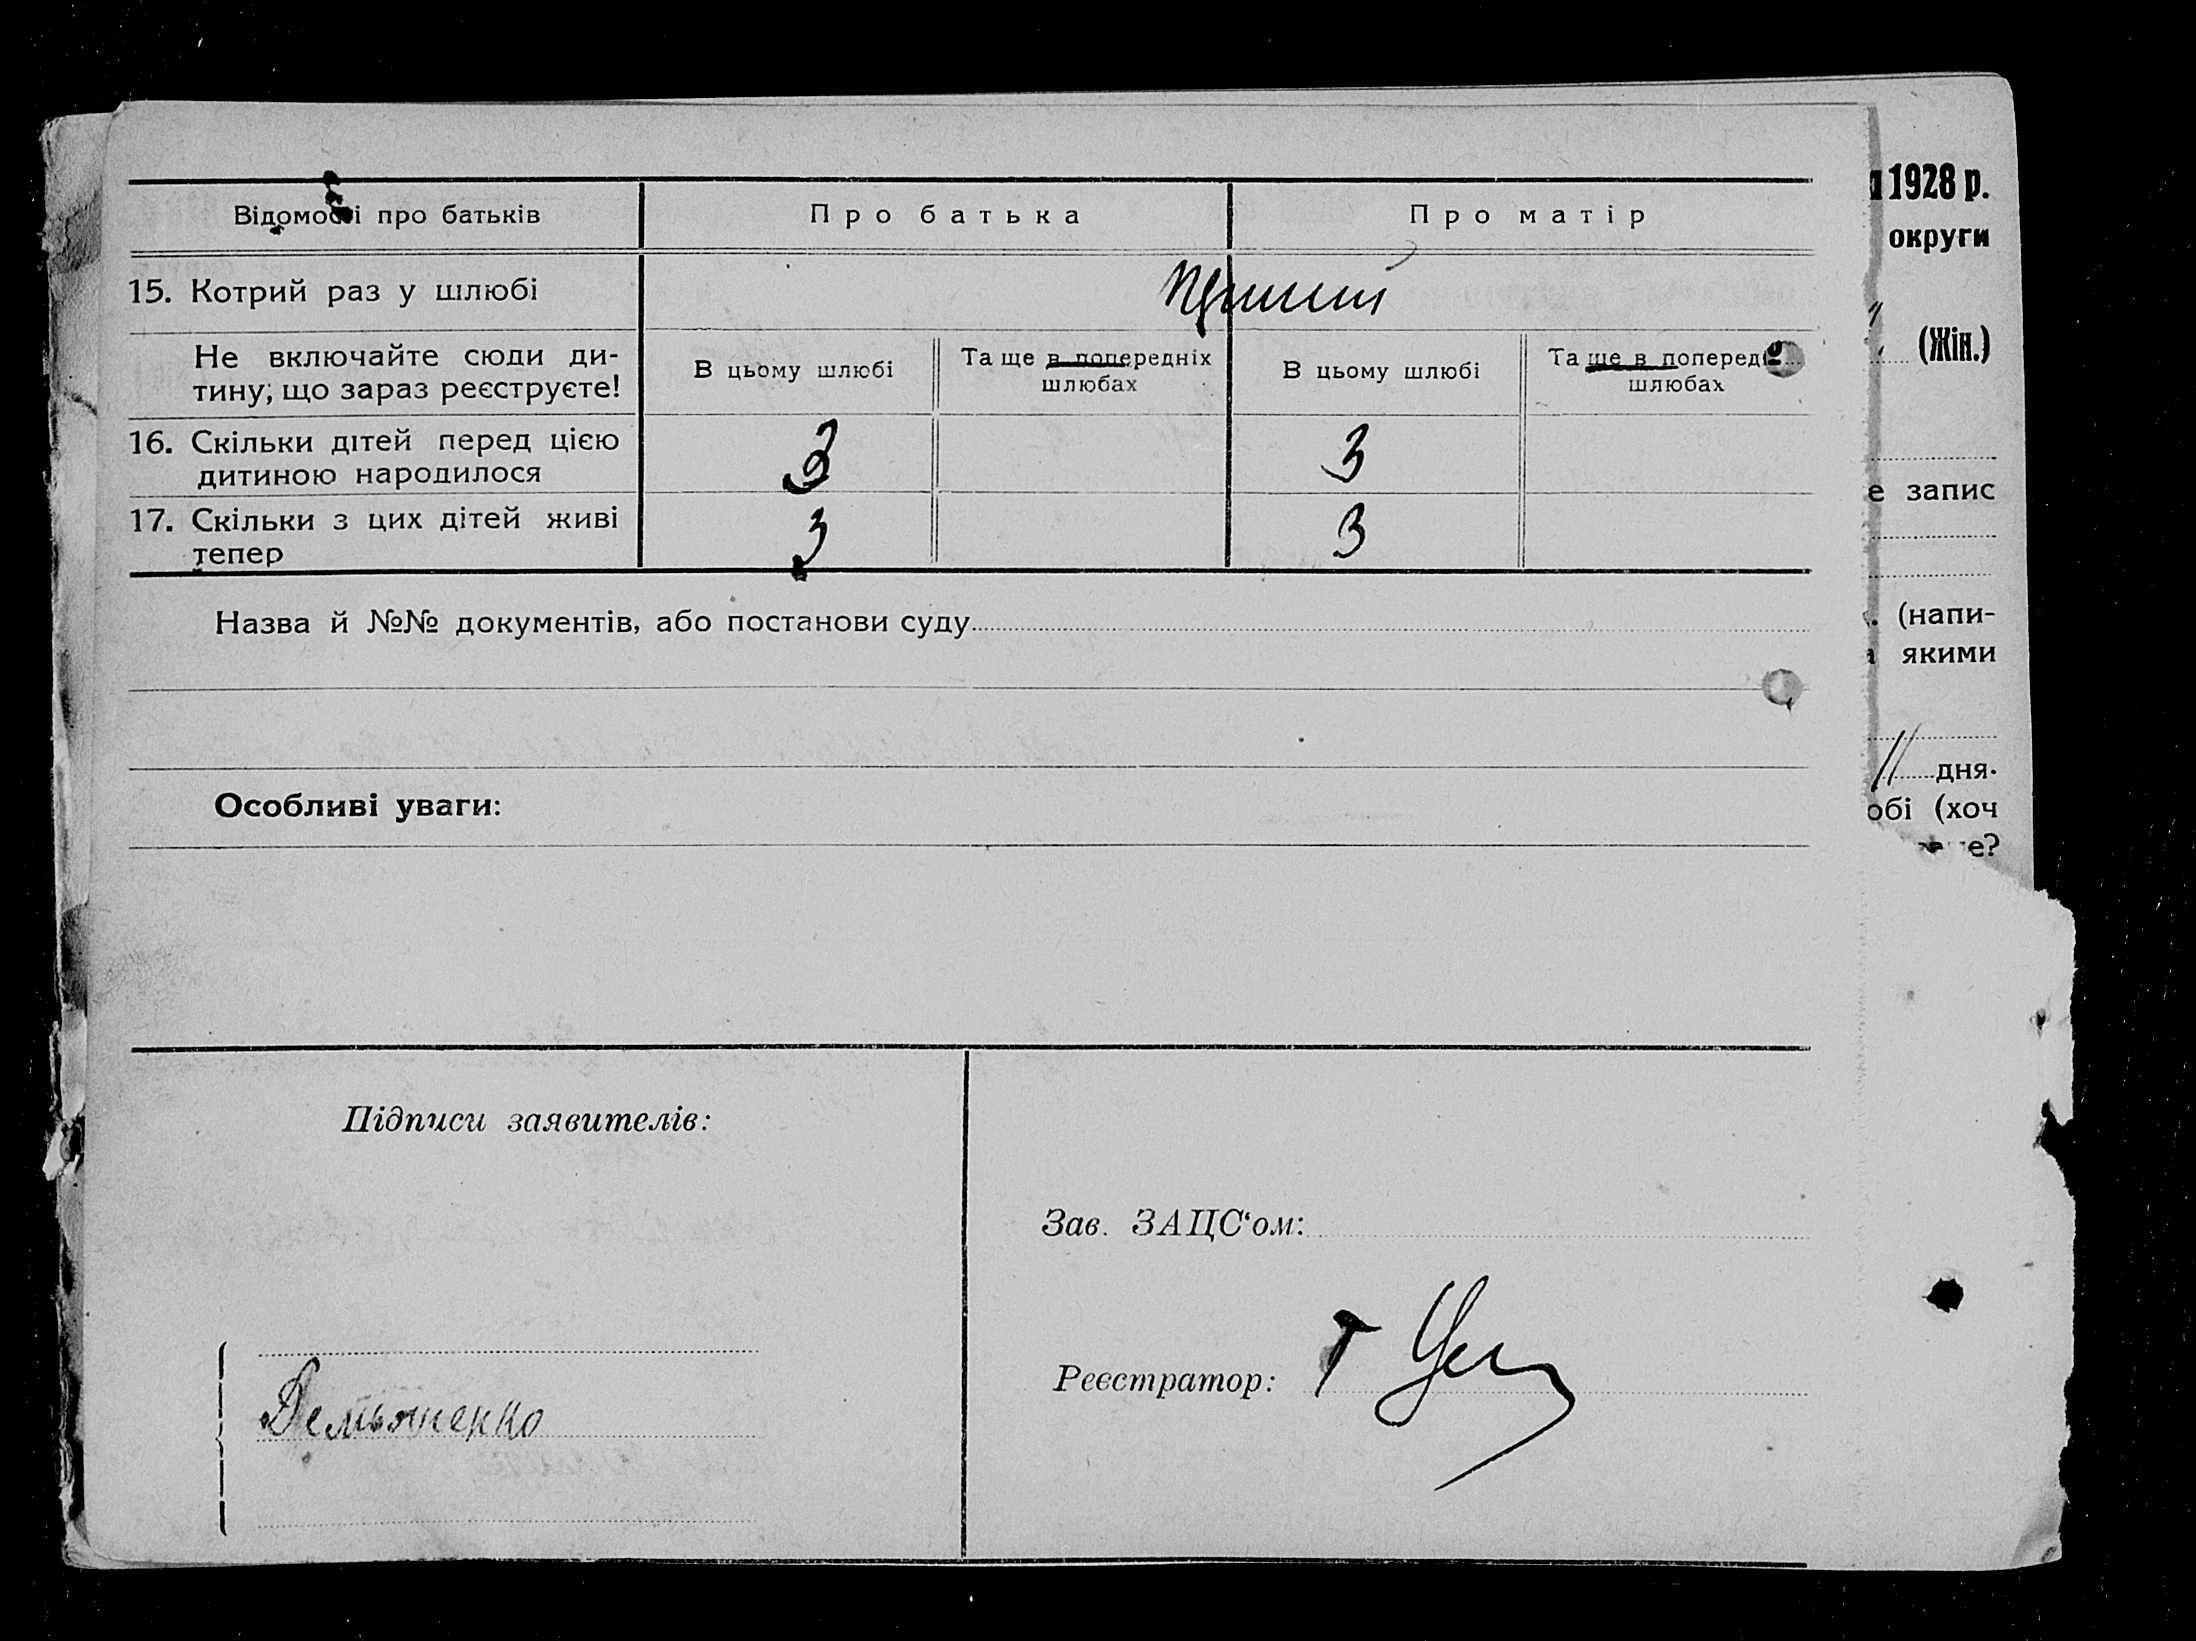 Відомості про батьків
Про батька
Про матір
15. Котрий раз у шлюбі
Не включайте сюди ди-
тину; що зараз реєструєте!
В цьому шлюбі
Та ще в попередніх
шлюбах
В цьому шлюбі
Та ще в поперед
шлюбах
16. Скільки дітей перед цією
дитиною народилося
3
3
17. Скільки з цих дітей живі
тепер
3
3
Назва й №№ документів, або постанови суду
Особливі уваги:
Підписи заявителів:
Демьяненко
Зав. ЗАЦС‘ом:
Реєстратор:
1928 р.
округи
(Жін.)
е запис
(напи-
якими
11 дня.
обі (хоч
е?